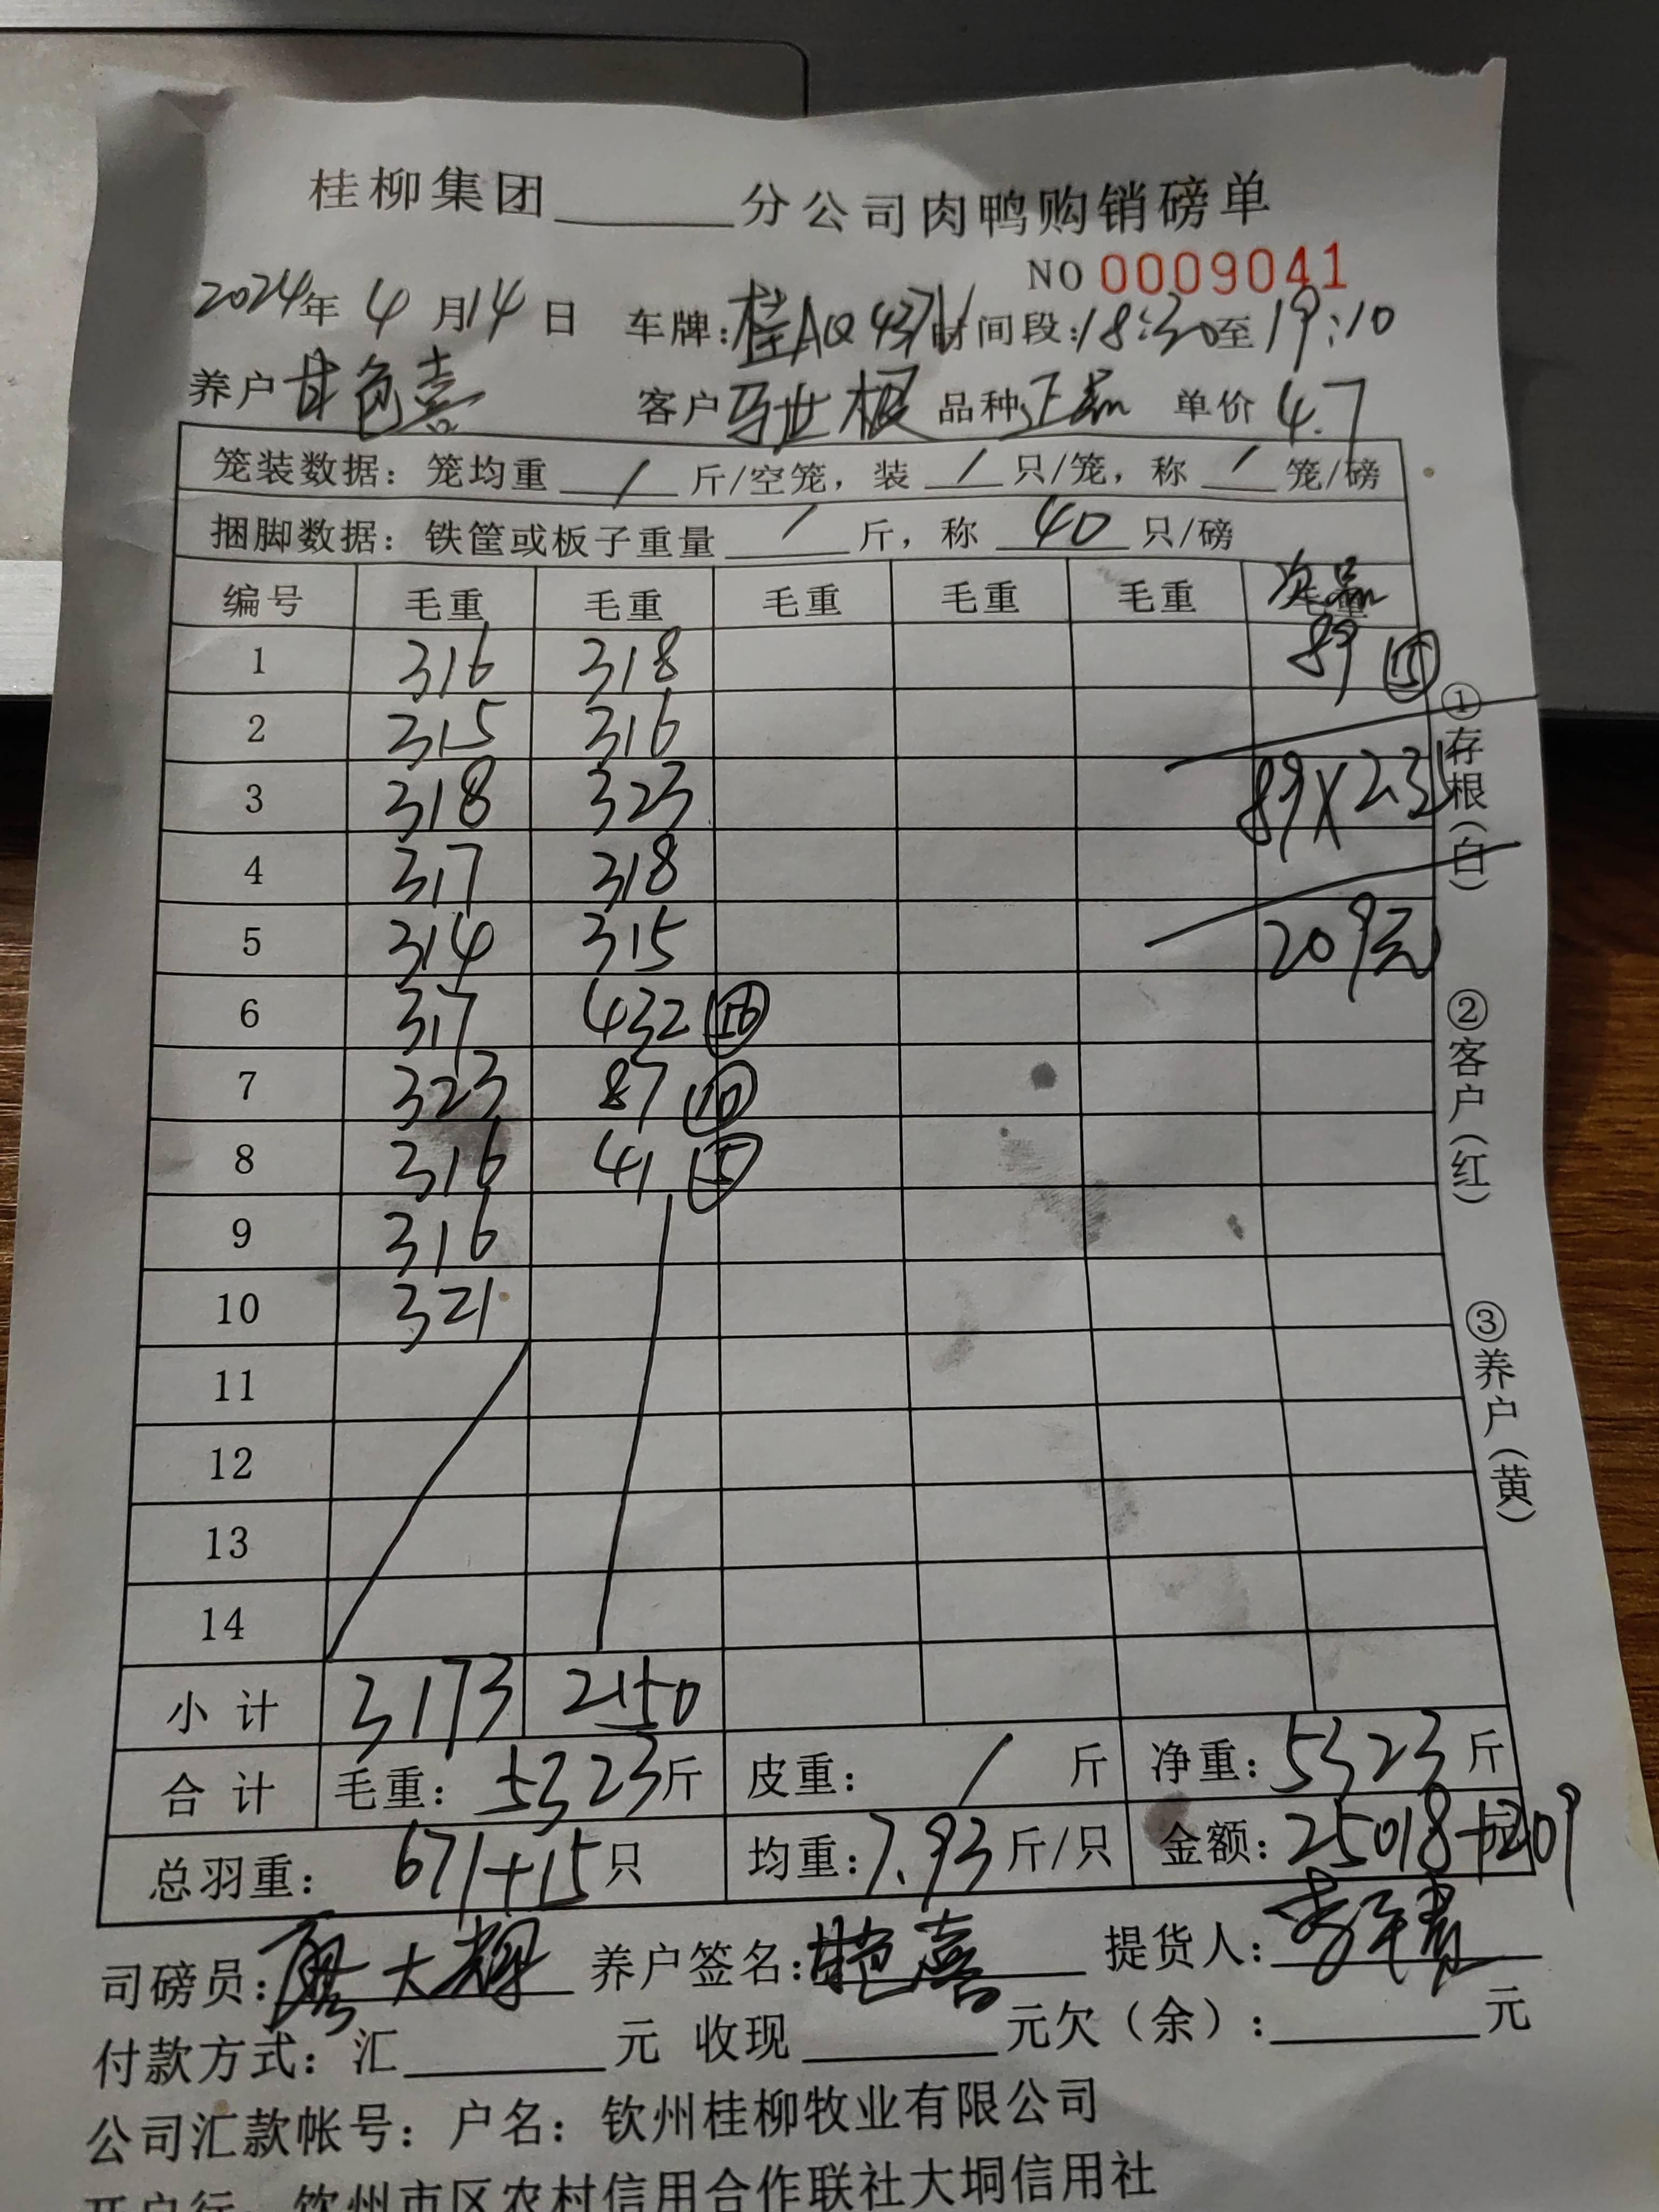 桂柳集团______分公司肉鸭购销磅单
NO 0009041
2024年 4 月 14 日 车牌:桂AQ437V 时间段:18:30至19:10
养户 甘色喜 客户 马世根 品种 正品 单价 4.7
笼装数据: 笼均重 / 斤/空笼, 装 / 只/笼, 称 / 笼/磅
捆脚数据: 铁筐或板子重量 / 斤, 称 40 只/磅
编号 毛重 毛重 毛重 毛重 毛重 次品
1 316 318 89 ⑮
2 315 316
3 318 323 89X2.35
4 317 318
5 314 315 209元
6 317 432
7 323 87 ⑩
8 316 41 ⑤
9 316
10 321
11
12
13
14
小计 3173 2150
合计 毛重: 5323斤 皮重: / 斤 净重: 5323斤
总羽重: 671+15只 均重: 7.93斤/只 金额: 25018+209
①存根(白)
②客户(红)
③养户(黄)
司磅员:廖大辉 养户签名: 提货人:
付款方式: 汇______元 收现______元欠(余):______元
公司汇款帐号: 户名: 钦州桂柳牧业有限公司
开户行: 钦州市区农村信用合作联社大垌信用社